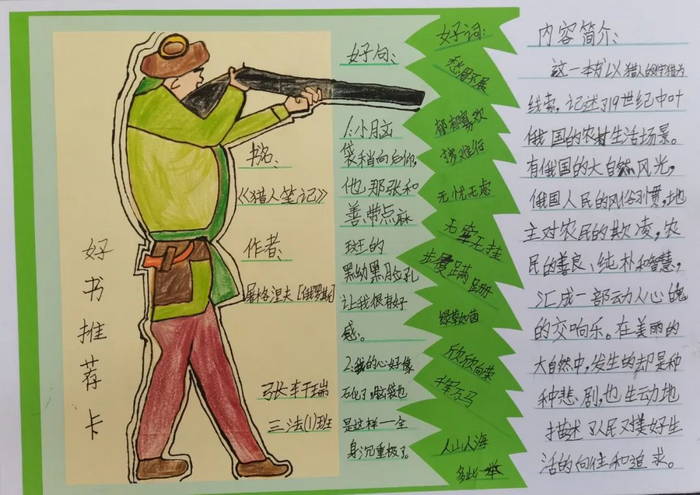 好书推荐卡
书名:
《猎人笔记》
作者:
屠格涅夫[俄罗斯]
三法(1)班
好句:
袋稍向后仰,
他那张和
善带点麻
斑的
让我很有好
感。
2.我的心好像
石化了,脑袋也
是这样一全
身沉重极了。
好词:
愁眉不展
郁郁寡欢
无忧无虑
无牵无挂
步履蹒跚
绿草如茵
欣欣向荣
人山人海
多此一举
内容简介:
这一本书以猎人的狩猎为
线索,记述了19世纪中叶
俄国的农村生活场景。
有俄国的大自然风光,
俄国人民的风俗习惯,地
主对农民的欺凌,农
民的善良、纯朴和智慧,
汇成一部动人心魄
的交响乐。在美丽的
大自然中,发生的却是种
种悲剧,也生动地
描述了人民对美好生
活的向往和追求。